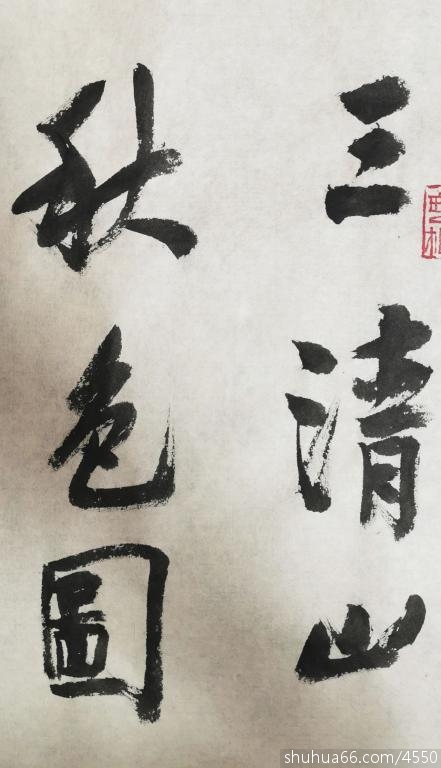 三清山
秋色圖
shuhua66.com/4550